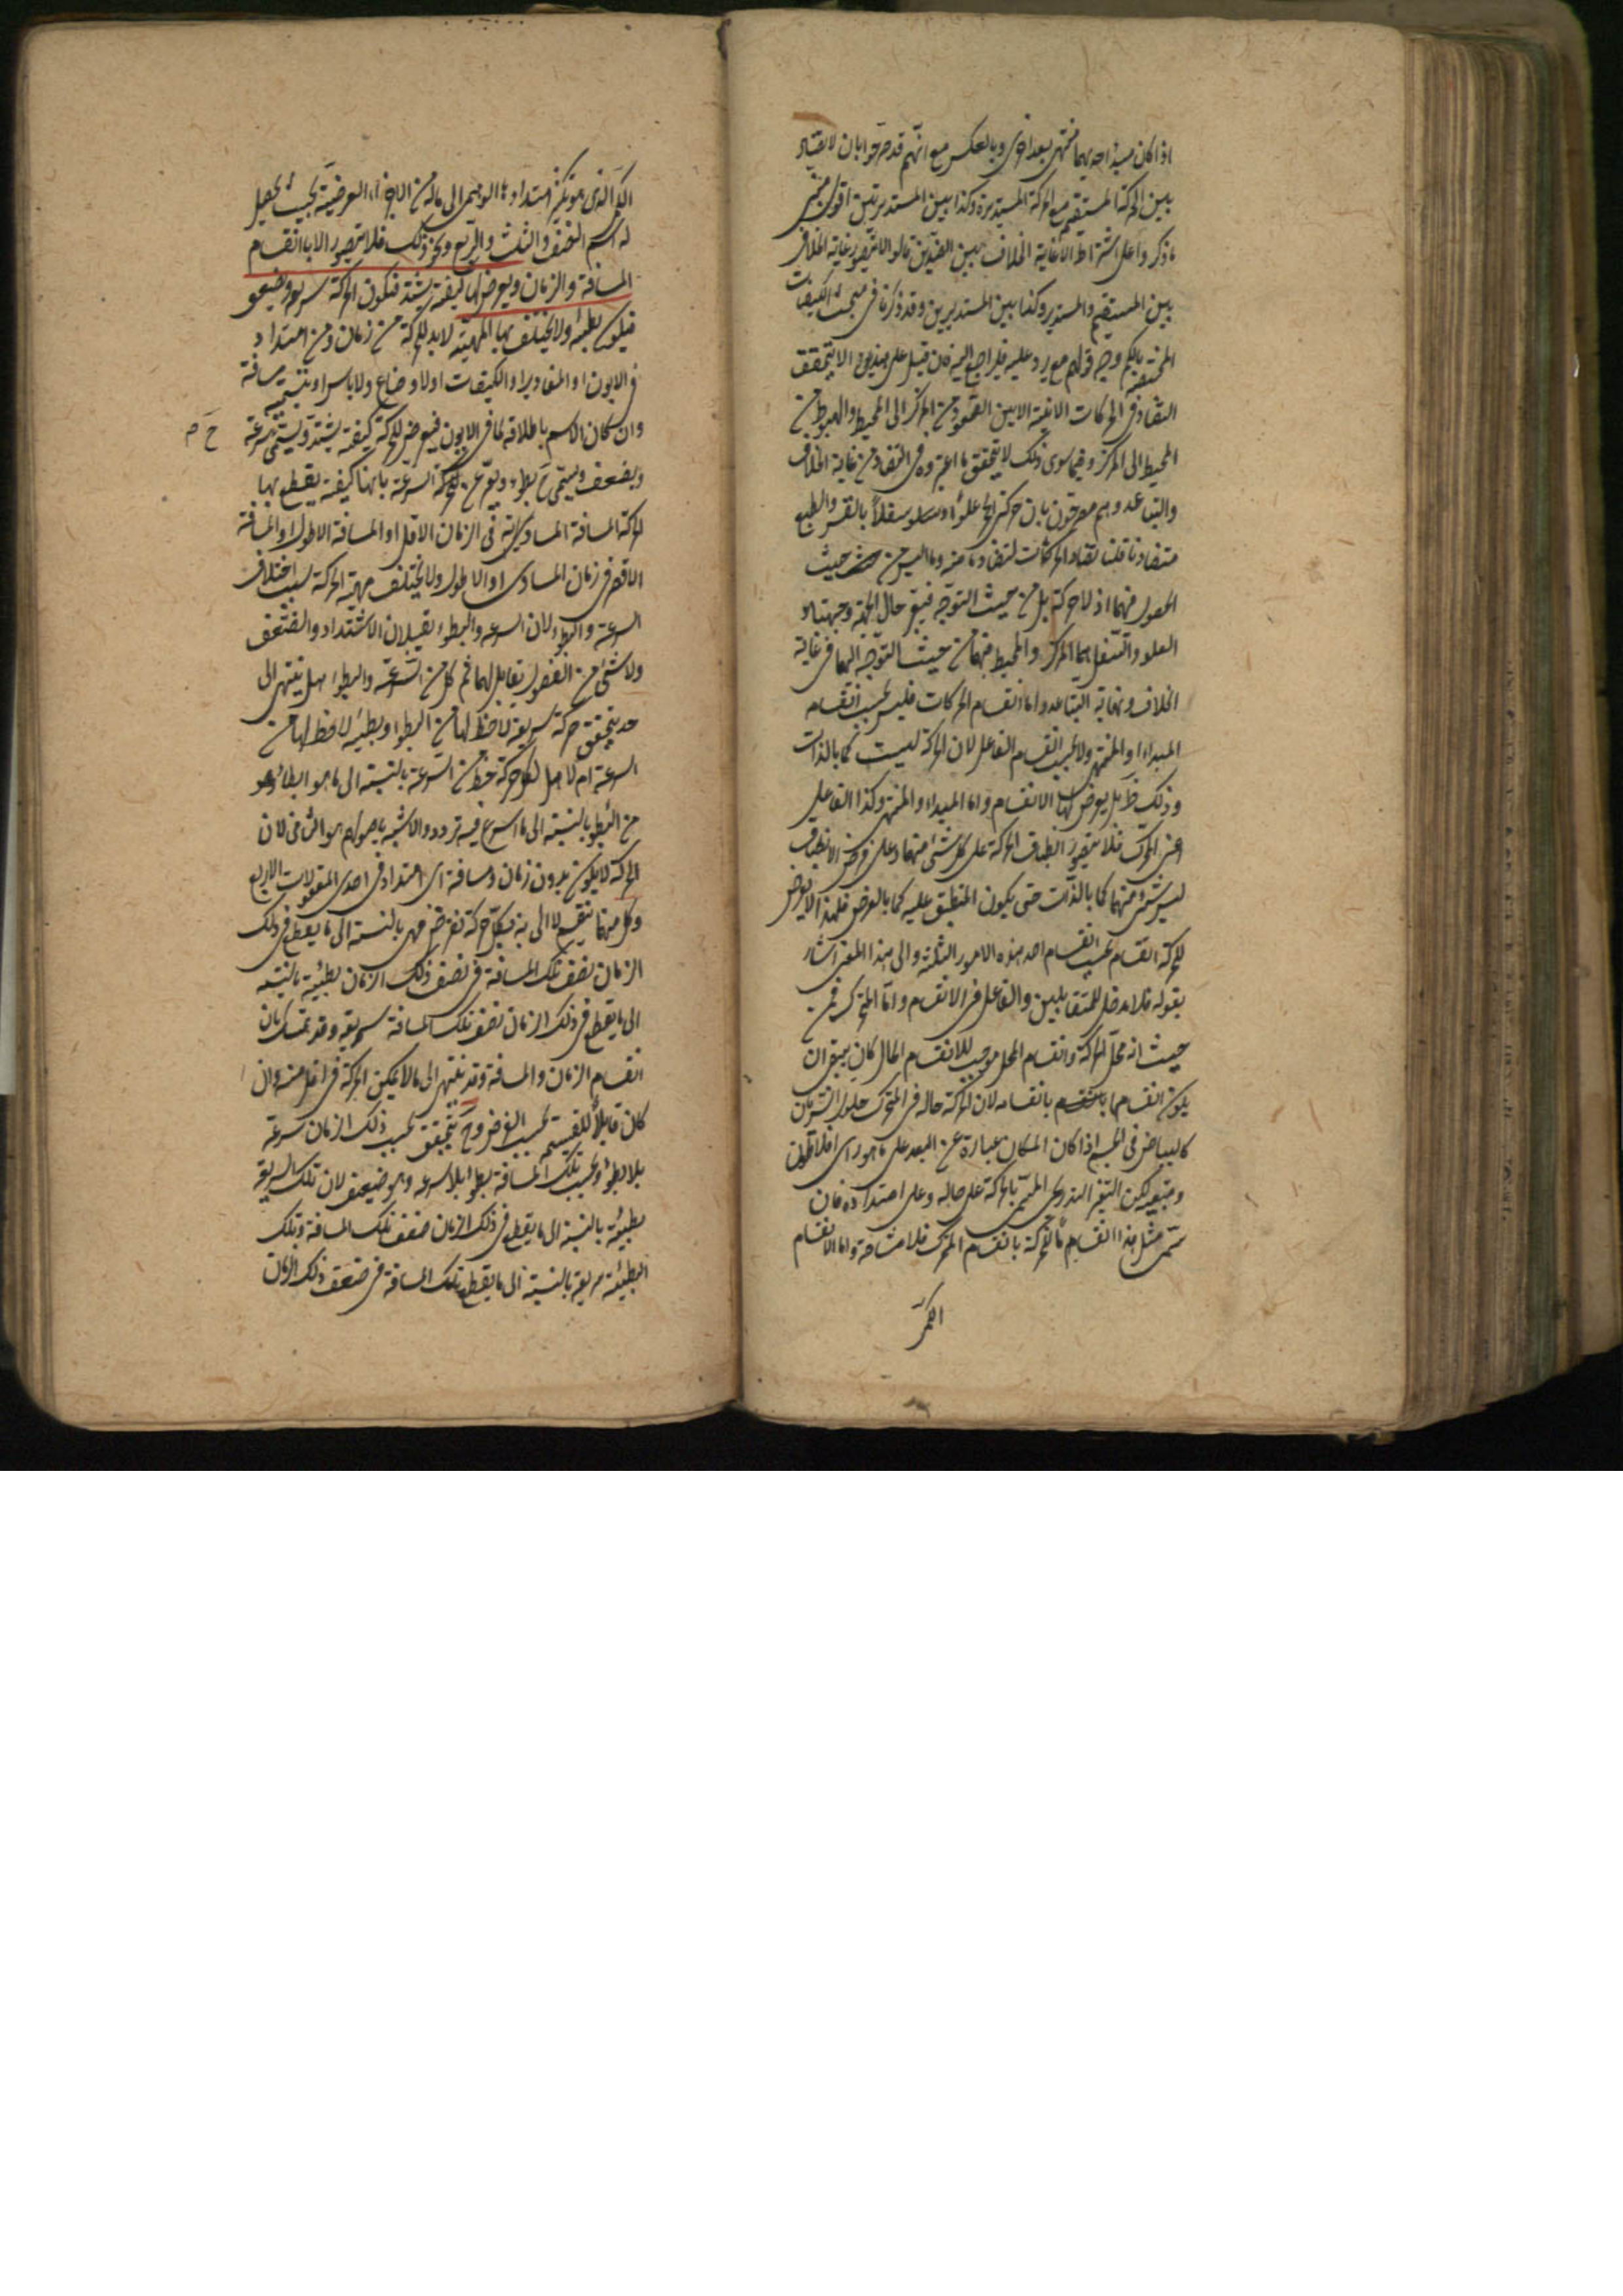 اذا كان مبدأ احديهما منتهى بعد اخرى وبالعكس مع انهم قد صرحوا بان لا تضاد
بين الحركة المستقيمة مع الحركة المستديرة وكذا بين المستديرتين اقول مبنى
ما ذكروا على اشتراط الا غاية الخلاف بين الضدين قالوا لا يتصور غاية الخلاف
بين المستقيم والمستدير وكذا بين المستديرين وقد ذكرنا فى مبحث الكيفيات
المختصة بالكم وجه قولهم مع يرد عليه فليراجع اليه فان قيل على هذين لا يتحقق
التضاد فى الحركات الاينية الا بين الصعود من المركز الى المحيط والهبوط من
المحيط الى المركز وفيما سوى ذلك لا يتحقق ما اعتبروه فى التضاد من غاية الخلاف
والتباعد وهم معترفون بان حركتى الحجر علوا وسفلا بالقسر والطبع
متضادتان قلنا تضاد الحركات لتضاد ما منه وما اليه ليس من حيث
الحصول فيهما اذ لا حركة بل من حيث التوجه فيعتبر حال الجهة وجهتا
العلو والسفل هما المركز والمحيط فهما من حيث التوجه اليهما فى غاية
الخلاف ونهاية التباعد واما انقسام الحركات فليس بحسب انقسام
المبدأ او المنتهى ولا بحسب انقسام الفاعل لان الحركة ليست كما بالذات
وذلك ظ بل يعرض لها الانقسام واما المبدأ والمنتهى وكذا الفاعل
اعنى المحرك فلا يتصور انطباق الحركة على كل شئ منها وعلى فرض الانطباق
ليس شئ منها كما بالذات حتى يكون المنطبق عليه كما بالعرض فلهذا لا يعرض
للحركة انقسام بحسب انقسام احد هذه الامور الثلثة والى هذا المعنى اشار
بقوله فلا مدخل للمتقابلين والفاعل فى الانقسام واما المتحرك فمن
حيث انه محل الحركة وانقسام المحل موجب للانقسام الحال كان يجب ان
يكون انقسامها بانقسامه لان الحركة حالة فى المتحرك حلول السريان
كالبياض فى الجسم اذا كان المكان عبارة عن البعد على ما هو راى افلاطون
التغير التدريجى المسمى بالحركة على حاله وعلى امتداده فان
سمى مثل هذا انقساما للحركة بانقسام المتحرك فلا مشاحة واما الانقسام
الكمى
الكم الذى هو تكثر امتدادها الوهمى الى ماله من الاجزاء العرضية بحيث يحصل
له اسم النصف والثلث والربع ونحو ذلك فلا يتصور الا بانقسام
المسافة والزمان ويعرض لها كيفية تشتد فتكون الحركة سريعة وتضعف
فيكون بطيئة ولا يختلف بها المهية لابد للحركة من زمان ومن امتداد
فى الايون او المقادير او الكيفيات او الاوضاع ولا باس ان نسميه مسافة
وان كان الاسم باطلاقه لما فى الايون فيعرض للحركة كيفية تشتد ويسمى سرعة
ح م
ويضعف ويسمى ح بطوء السرعة بانها كيفية يقطع بها
الحركة المسافة المساوية فى الزمان الاقل او المسافة الاطول او المسافة
الاقصر فى زمان المساوى او الاطول ولا يختلف مهية الحركة بسبب اختلاف
السرعة والبطوء لان السرعة والبطوء يقبلان الاشتداد والضعف
ولا شئ من الفصول يقابل لهما ثم كل من السرعة والبطوء هل ينتهى الى
حد يتحقق حركة سريعة لا حظ لها من البطوء وبطيئة لا حظ لها من
السرعة ام لا بل لكل حركة حظ من السرعة بالنسبة الى ما هو ابطأ وهو
من البطوء بالنسبة الى ما اسرع فيه تردد والاشبه باصولهم هو الثانى لان
الحركة لا يكون بدون زمان ومسافة اى امتداد فى احدى المقولات الاربع
وكل منهما ينقسم لا الى نهاية فكل حركة تفرض فهى بالنسبة الى ما يقطع فى ذلك
الزمان نصف تلك المسافة فى نصف ذلك الزمان بطيئة بالنسبة
الى ما يقطع فى ذلك الزمان نصف تلك المسافة سريعة وقد يتمسك بان
انقسام الزمان والمسافة وقد ينتهى الى ما لا يمكن الحركة فى اقل منه وان
كان قابلا للقسمة بحسب الفرض وح يتحقق بحسب ذلك الزمان سرعة
بلا بطوء وبحسب تلك المسافة بطوء بلا سرعة وهو ضعيف لان تلك السريعة
بطيئة بالنسبة الى ما يقطع فى ذلك الزمان ضعف تلك المسافة وتلك
البطيئة سريعة بالنسبة الى ما يقطع تلك المسافة فى ضعف ذلك الزمان